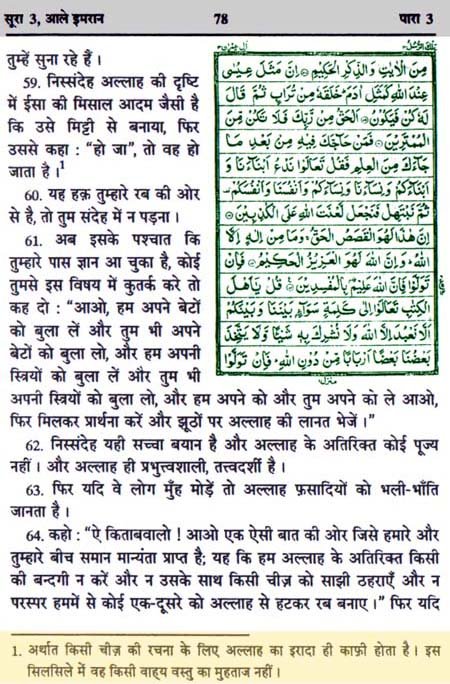 सूरा 3, आले इमरान 78 पारा 3
तुम्हें सुना रहे हैं ।
59. निस्संदेह अल्लाह की दृष्टि
में ईसा की मिसाल आदम जैसी है
कि उसे मिट्टी से बनाया, फिर
उससे कहा : “हो जा”, तो वह हो
जाता है ।¹
60. यह हक़ तुम्हारे रब की ओर
से है, तो तुम संदेह में न पड़ना ।
61. अब इसके पश्चात कि
तुम्हारे पास ज्ञान आ चुका है, कोई
तुमसे इस विषय में कुतर्क करे तो
कह दो : “आओ, हम अपने बेटों
को बुला लें और तुम भी अपने
बेटों को बुला लो, और हम अपनी
स्त्रियों को बुला लें और तुम भी
अपनी स्त्रियों को बुला लो, और हम अपने को और तुम अपने को ले आओ,
फिर मिलकर प्रार्थना करें और झूठों पर अल्लाह की लानत भेजें ।”
62. निस्संदेह यही सच्चा बयान है और अल्लाह के अतिरिक्त कोई पूज्य
नहीं । और अल्लाह ही प्रभुत्त्वशाली, तत्त्वदर्शी है ।
63. फिर यदि वे लोग मुँह मोड़ें तो अल्लाह फ़सादियों को भली-भाँति
जानता है ।
64. कहो : “ऐ किताबवालो ! आओ एक ऐसी बात की ओर जिसे हमारे और
तुम्हारे बीच समान मान्यता प्राप्त है; यह कि हम अल्लाह के अतिरिक्त किसी
की बन्दगी न करें और न उसके साथ किसी चीज़ को साझी ठहराएँ और न
परस्पर हममें से कोई एक-दूसरे को अल्लाह से हटकर रब बनाए ।” फिर यदि
مِنَ الْاٰيٰتِ وَالذِّكْرِ الْحَكِيْمِ اِنَّ مَثَلَ عِيْسٰى
عِنْدَ اللهِ كَمَثَلِ اٰدَمَ خَلَقَهٗ مِنْ تُرَابٍ ثُمَّ قَالَ
لَهٗ كُنْ فَيَكُوْنُ اَلْحَقُّ مِنْ رَّبِّكَ فَلَا تَكُنْ مِّنَ
الْمُمْتَرِيْنَ فَمَنْ حَآجَّكَ فِيْهِ مِنْۢ بَعْدِ مَا
جَآءَكَ مِنَ الْعِلْمِ فَقُلْ تَعَالَوْا نَدْعُ اَبْنَآءَنَا وَ
اَبْنَآءَكُمْ وَنِسَآءَنَا وَنِسَآءَكُمْ وَاَنْفُسَنَا وَاَنْفُسَكُمْ
ثُمَّ نَبْتَهِلْ فَنَجْعَلْ لَّعْنَتَ اللهِ عَلَى الْكٰذِبِيْنَ
اِنَّ هٰذَا لَهُوَ الْقَصَصُ الْحَقُّ وَمَا مِنْ اِلٰهٍ اِلَّا
اللهُ وَاِنَّ اللهَ لَهُوَ الْعَزِيْزُ الْحَكِيْمُ فَاِنْ
تَوَلَّوْا فَاِنَّ اللهَ عَلِيْمٌۢ بِالْمُفْسِدِيْنَ قُلْ يٰٓاَهْلَ
الْكِتٰبِ تَعَالَوْا اِلٰى كَلِمَةٍ سَوَآءٍۢ بَيْنَنَا وَبَيْنَكُمْ
اَلَّا نَعْبُدَ اِلَّا اللهَ وَلَا نُشْرِكَ بِهٖ شَيْئًا وَّلَا يَتَّخِذَ
بَعْضُنَا بَعْضًا اَرْبَابًا مِّنْ دُوْنِ اللهِ فَاِنْ تَوَلَّوْا
منزل
1. अर्थात किसी चीज़ की रचना के लिए अल्लाह का इरादा ही काफ़ी होता है । इस
सिलसिले में वह किसी वाह्य वस्तु का मुहताज नहीं ।